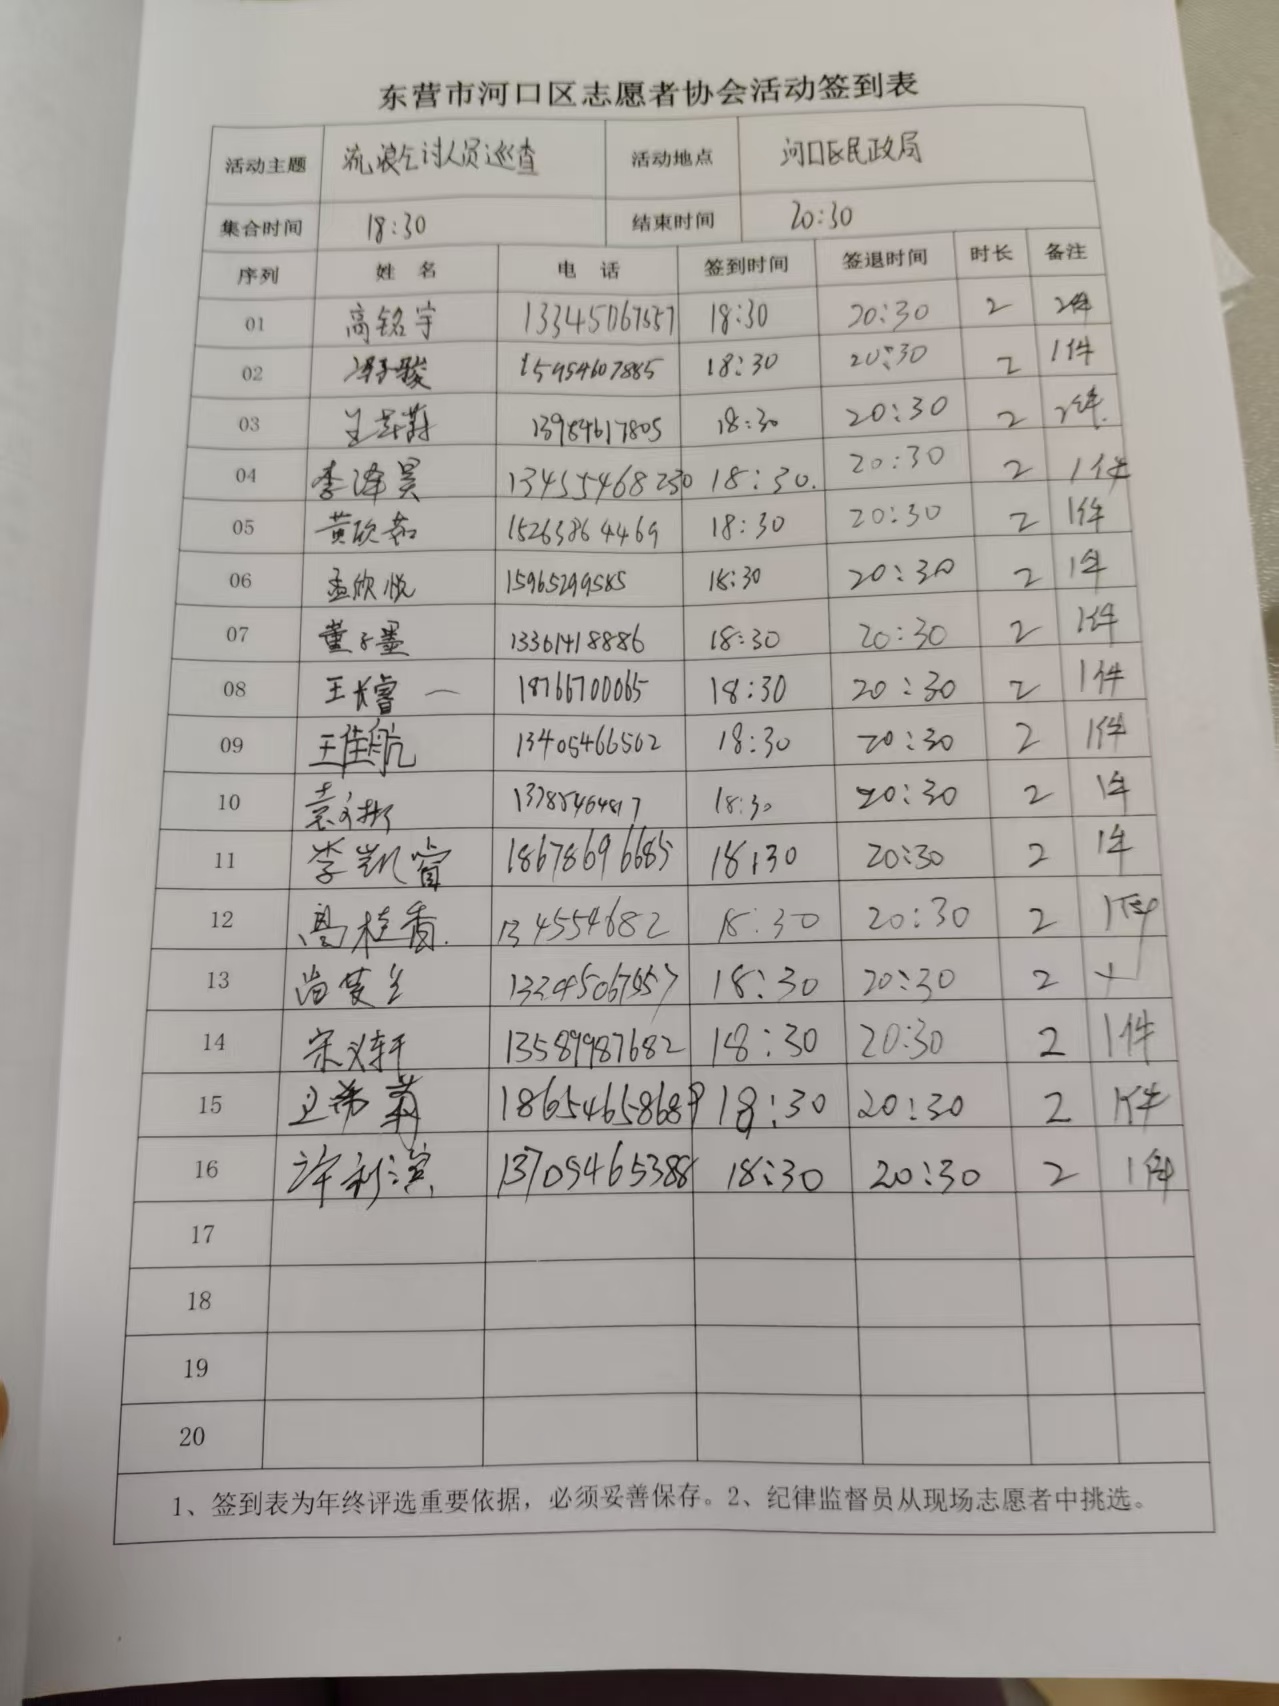 东营市河口区志愿者协会活动签到表
活动主题 流浪乞讨人员巡查 活动地点 河口区民政局
集合时间 18:30 结束时间 20:30
序列 姓名 电话 签到时间 签退时间 时长 备注
01 高铭宇 13345067557 18:30 20:30 2 2件
02 15954607885 18:30 20:30 2 1件
03 13984617805 18:30 20:30 2 2件.
04 李泽昊 13455468230 18:30. 20:30 2 1件
05 黄欣茹 15263864469 18:30 20:30 2 1件
06 孟欣悦 15965299585 18:30 20:30 2 1件
07 董子墨 13361418886 18:30 20:30 2 1件
08 王长睿 18766700065 18:30 20:30 2 1件
09 王佳航 13405466502 18:30 20:30 2 1件
10 18:30 20:30 2 1件
11 李凯睿 18678696685 18:30 20:30 2 1件
12 高桂香. 134554682 18:30 20:30 2 1件
13 18:30 20:30 2
14 宋义轩 13589987682 18:30 20:30 2 1件
15 18:30 20:30 2 1件
16 许利滨 13705465388 18:30 20:30 2 1件
17
18
19
20
1、签到表为年终评选重要依据，必须妥善保存。2、纪律监督员从现场志愿者中挑选。